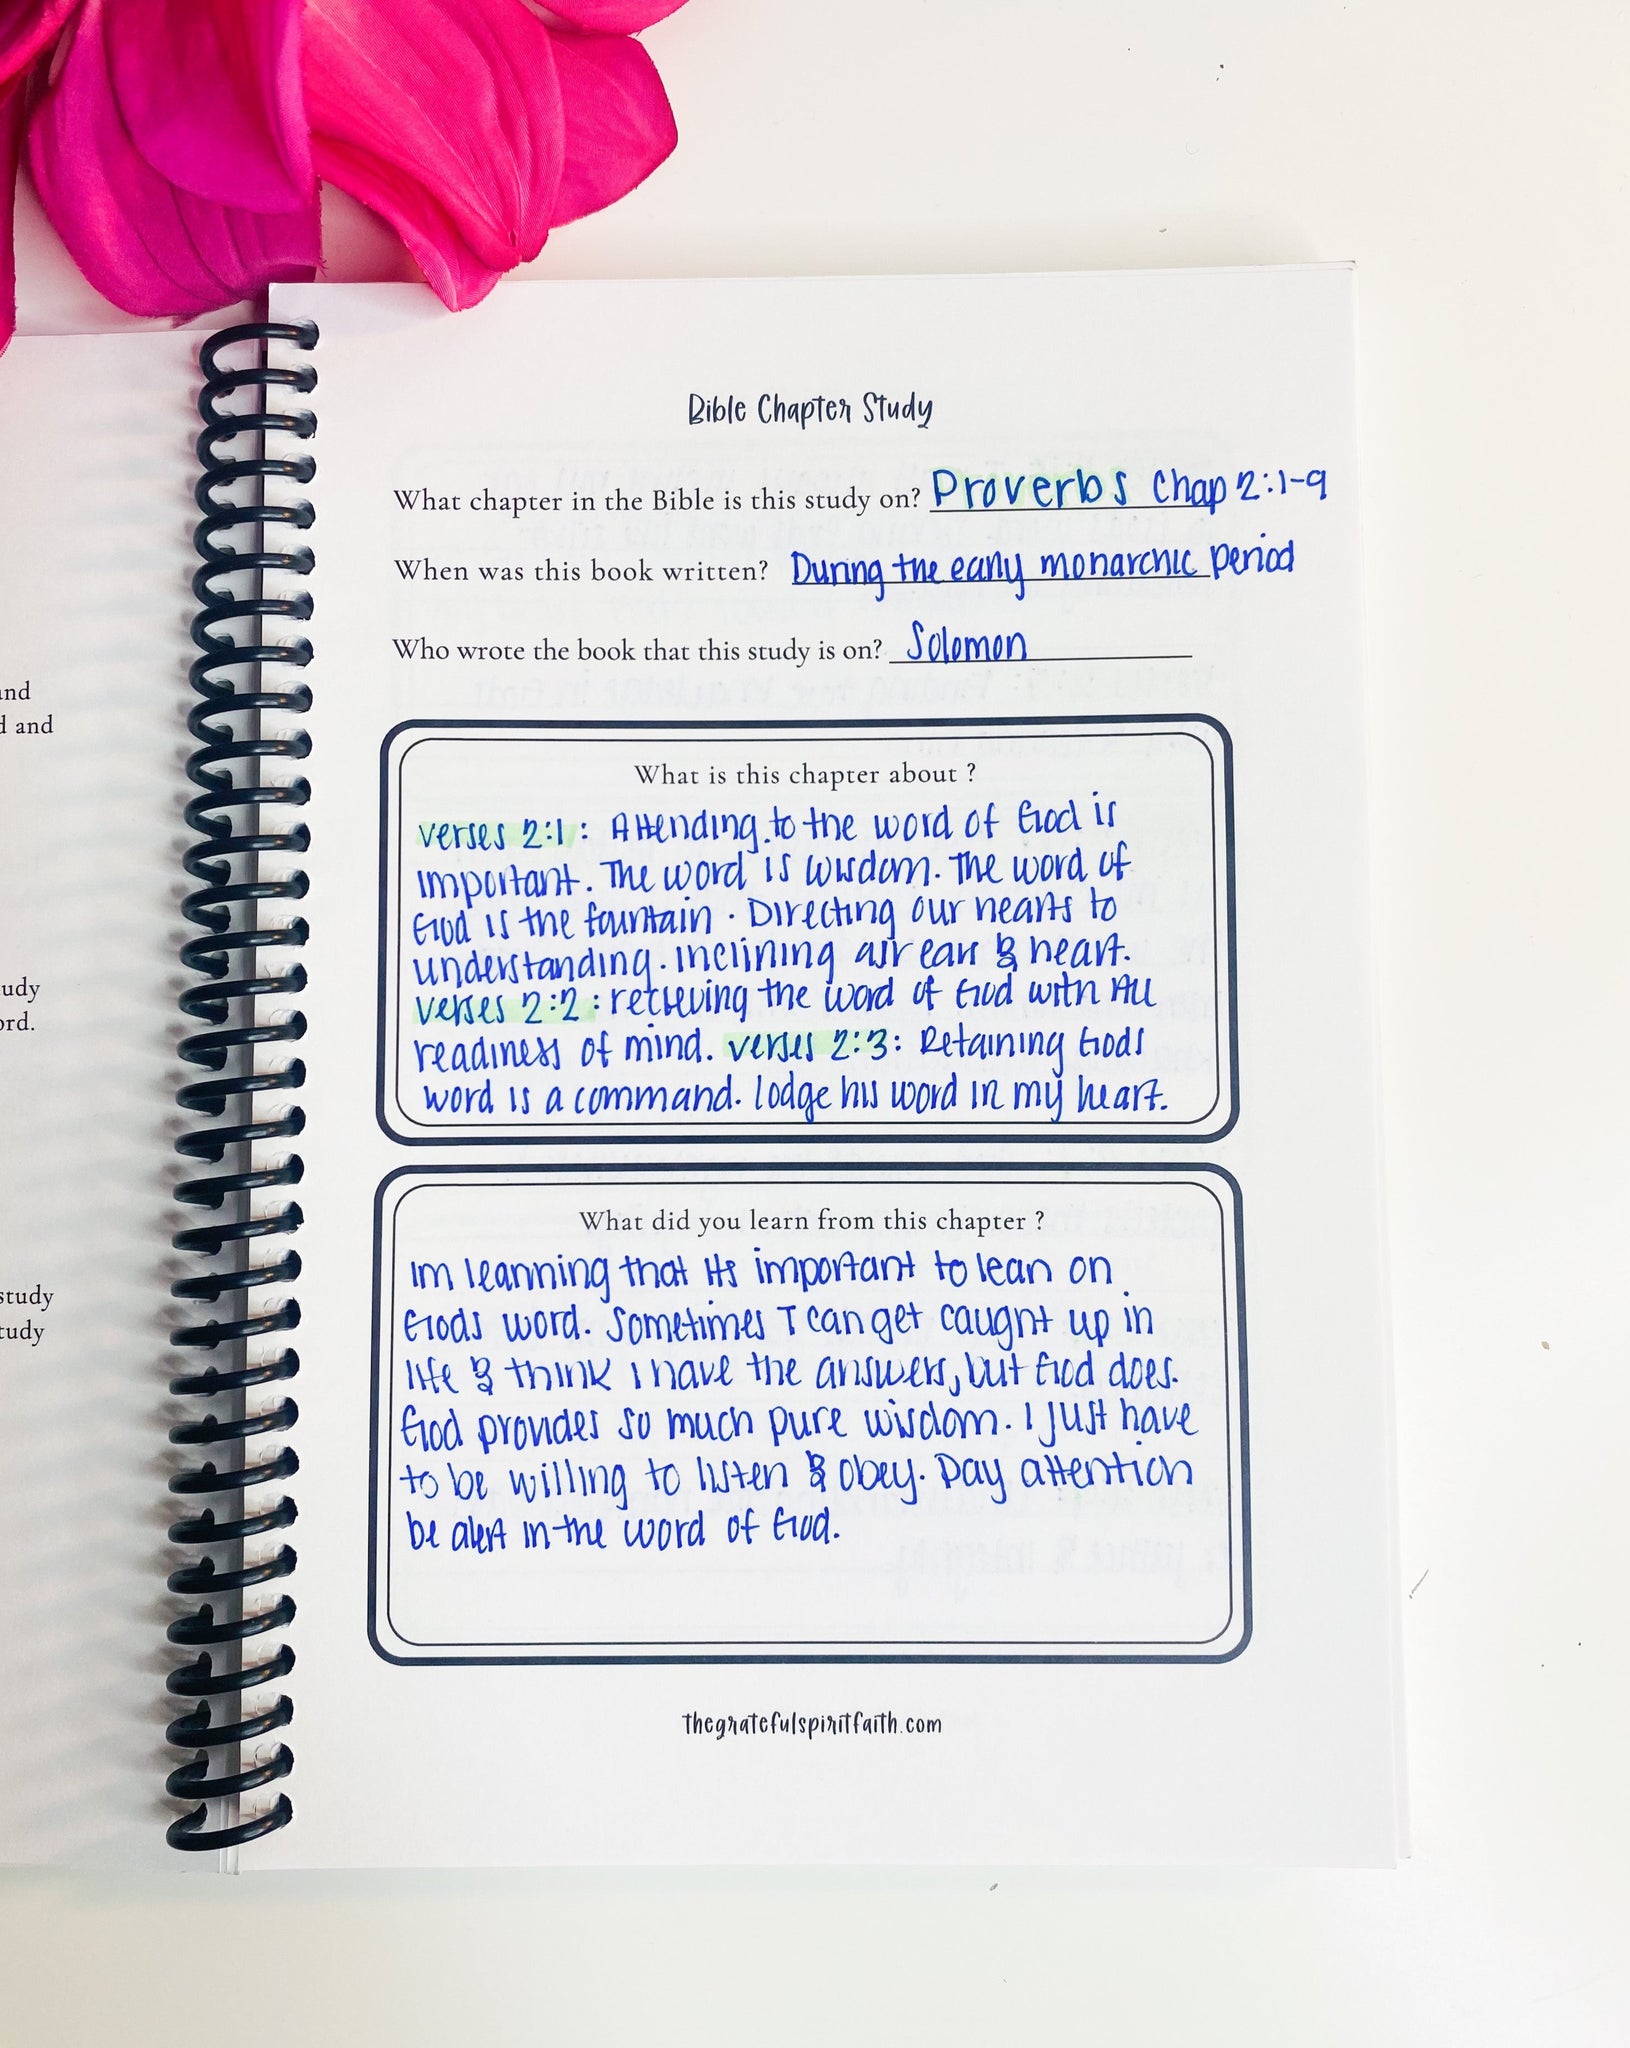 Bible Chapter Study
What chapter in the Bible is this study on? Proverbs Chap 2:1-9
When was this book written? During the early monarchic period
Who wrote the book that this study is on? Solomon
What is this chapter about ?
verses 2:1: Attending to the word of God is
important. The word is wisdom. The word of
God is the fountain. Directing our hearts to
understanding. inclining air ears & heart.
verses 2:2: recieving the word of God with All
readiness of mind. verses 2:3: Retaining Gods
word is a command. lodge his word in my heart.
What did you learn from this chapter ?
Im learning that its important to lean on
Gods word. Sometimes I can get caught up in
life & think I have the answers, but God does.
God provides so much pure wisdom. I just have
to be willing to listen & obey. Pay attention
be alert in the word of God.
thegratefulspiritfaith.com
and
d and
udy
ord.
study
tudy